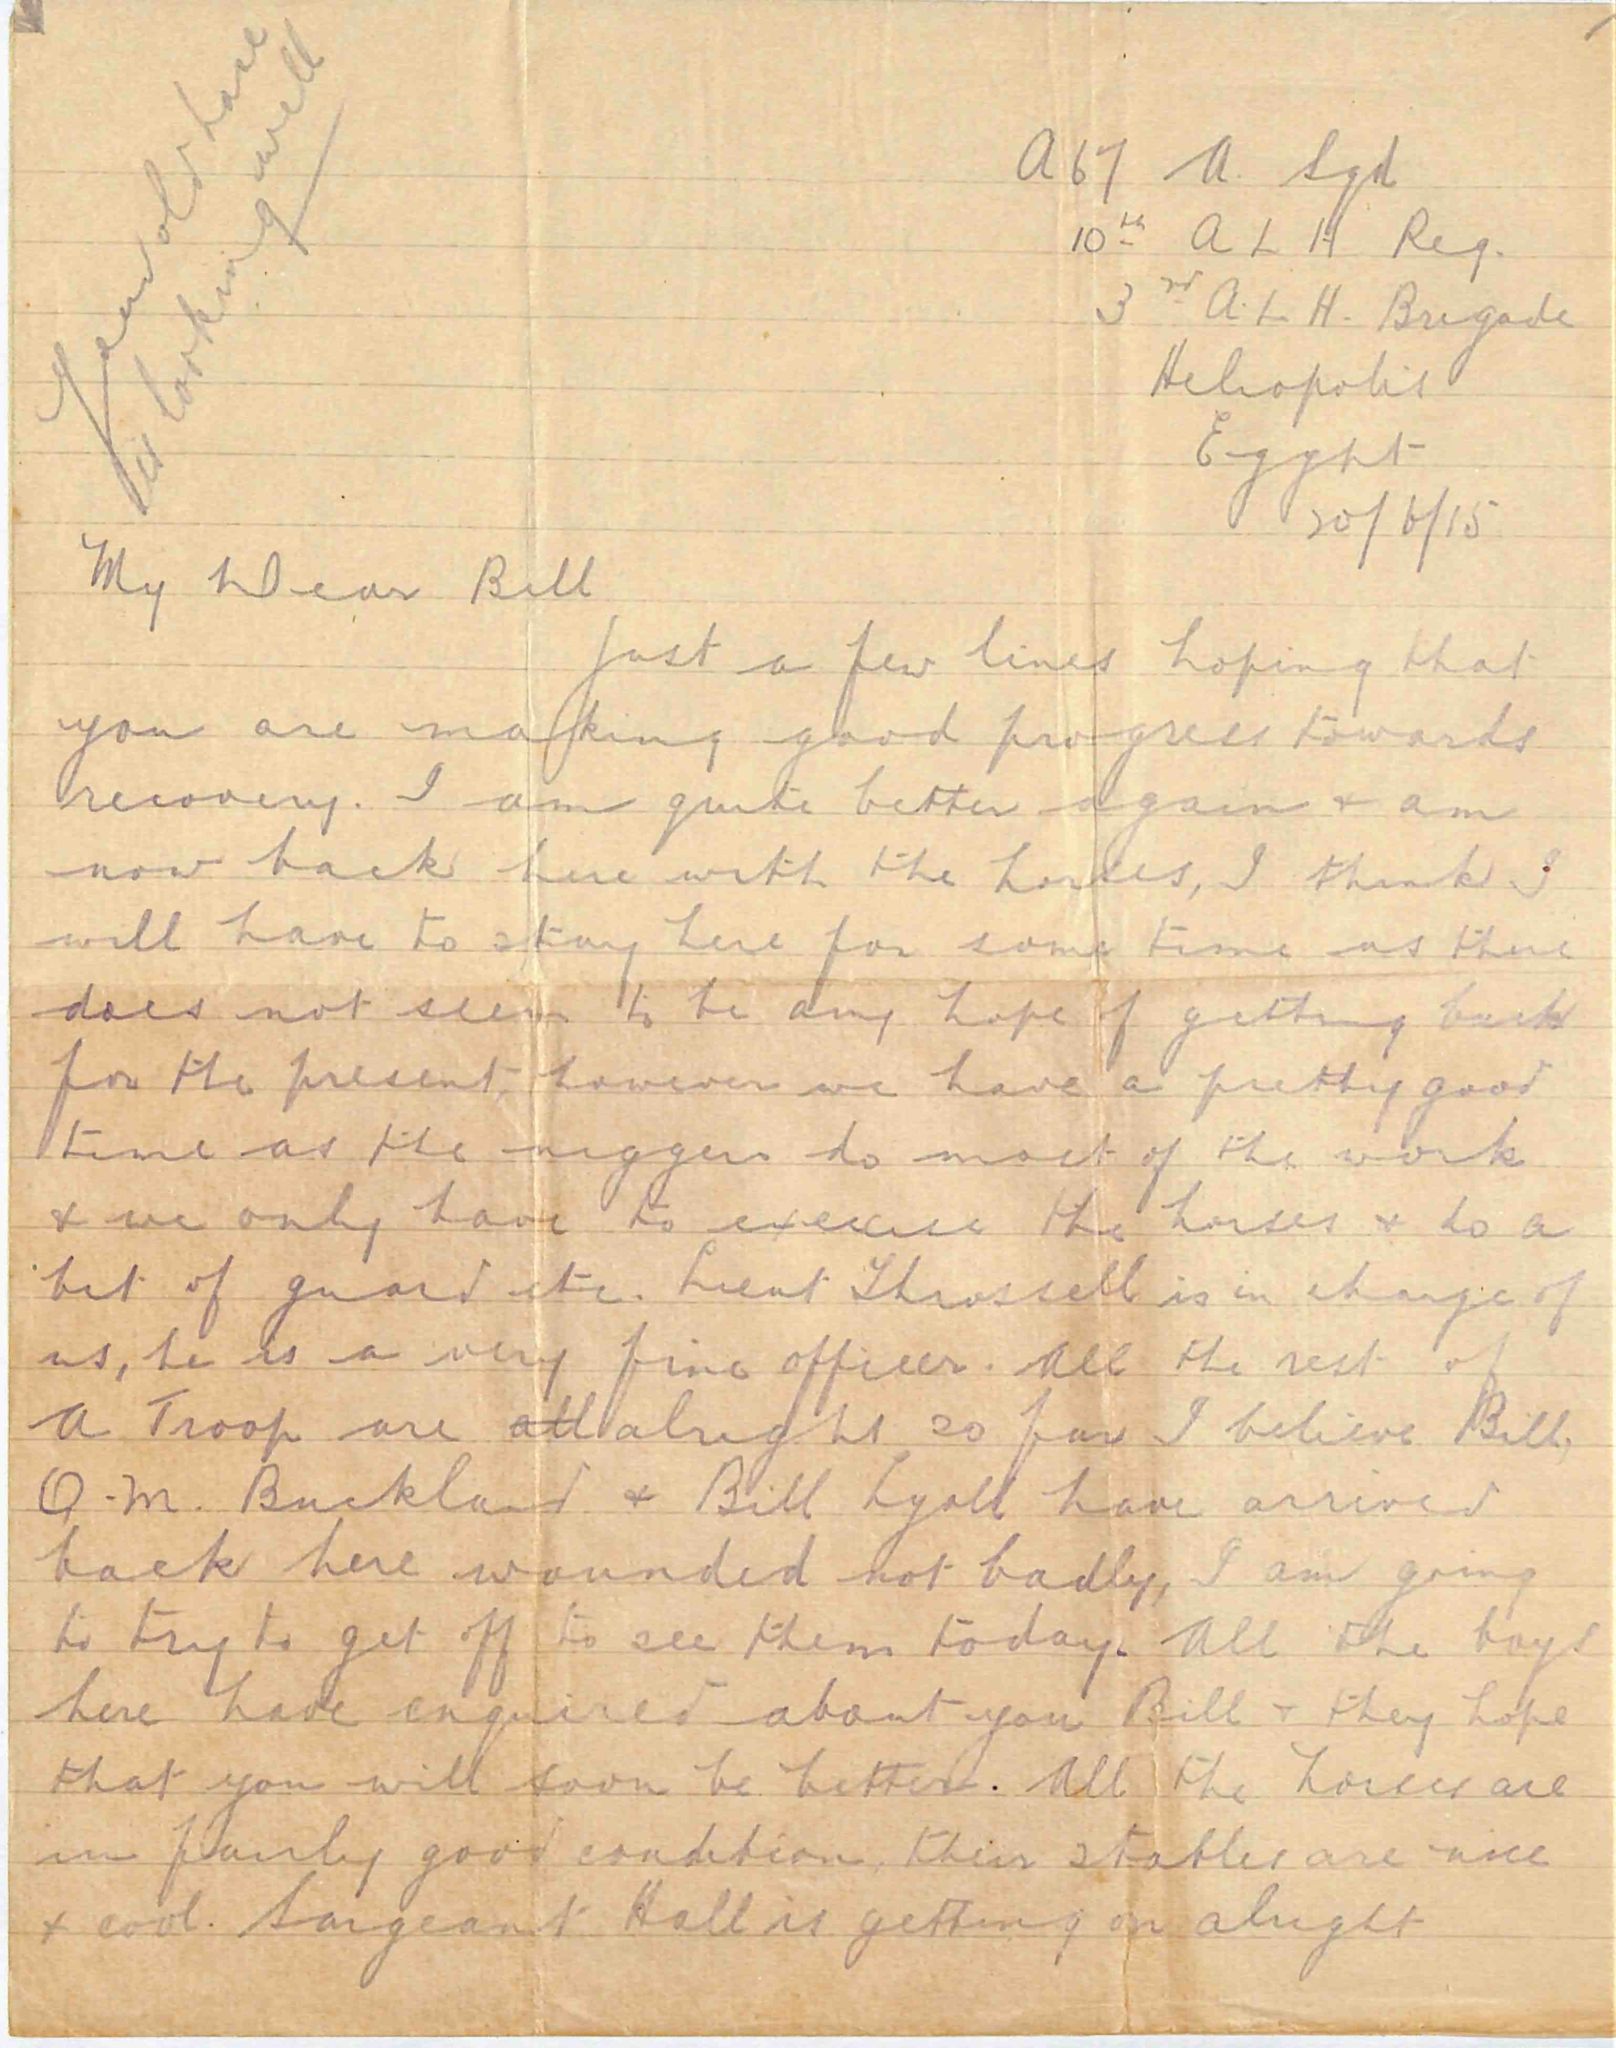 Your old horse
is looking well
A 67 A. Sqd
10th A L H Reg.
3rd A. L. H. Brigade
Heliopolis
Egypt
20/6/15
My Dear Bill
Just a few lines hoping that
you are making good progress towards
recovery. I am quite better again & am
now back here with the horses, I think I
will have to stay here for some time as there
does not seem to be any hope of getting back
for the present, however we have a pretty good
time as the niggers do most of the work
& we only have to excecise the horses & do a
bit of guard etc. Lieut Throssell is in charge of
us, he is a very fine officer. All the rest of
A Troop are all alright so far I believe Bill,
Q.M. Buckland & Bill Lyall have arrived
back here wounded not badly, I am going
to try to get off to see them today. All the boys
here have enquired about you Bill & they hope
that you will soon be better. All the horses are
in fairly good condition, their stables are nice
& cool. Sargeant Hall is getting on alright